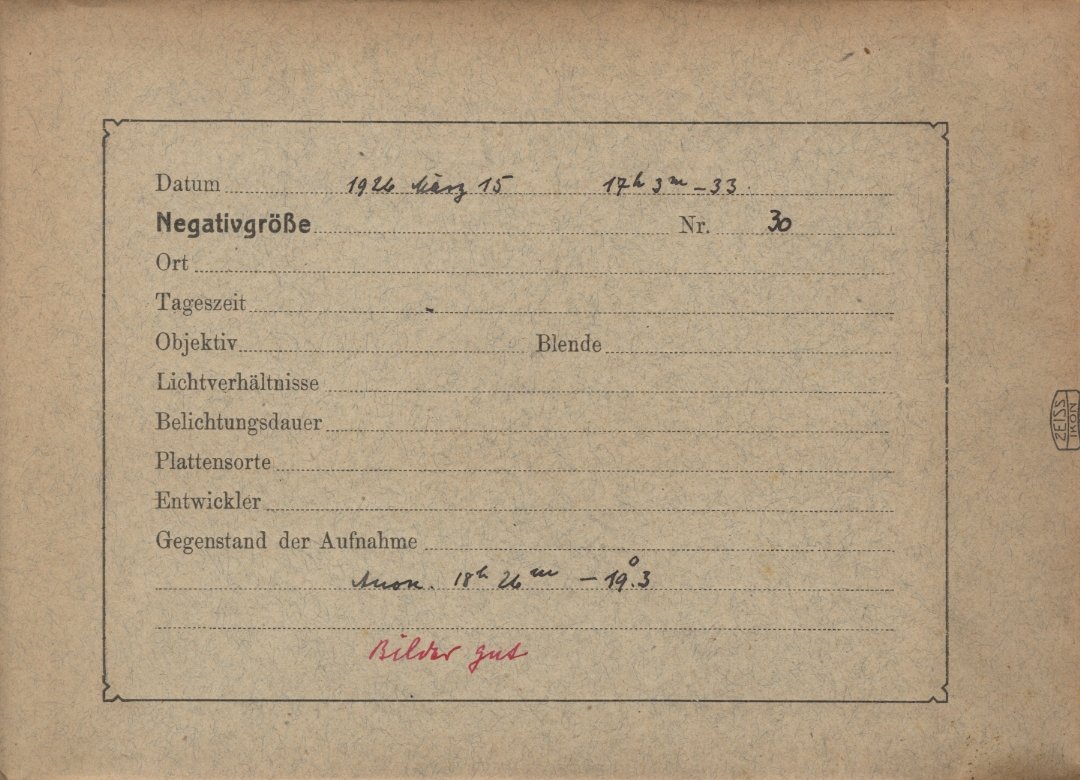 Datum 1926 März 15 17h 3m – 33
Negativgröße Nr. 30
Ort
Tageszeit
Objektiv Blende
Lichtverhältnisse
Belichtungsdauer
Plattensorte
Entwickler
Gegenstand der Aufnahme
18h 26m – 19°.3
Bilder gut
ZEISS
IKON